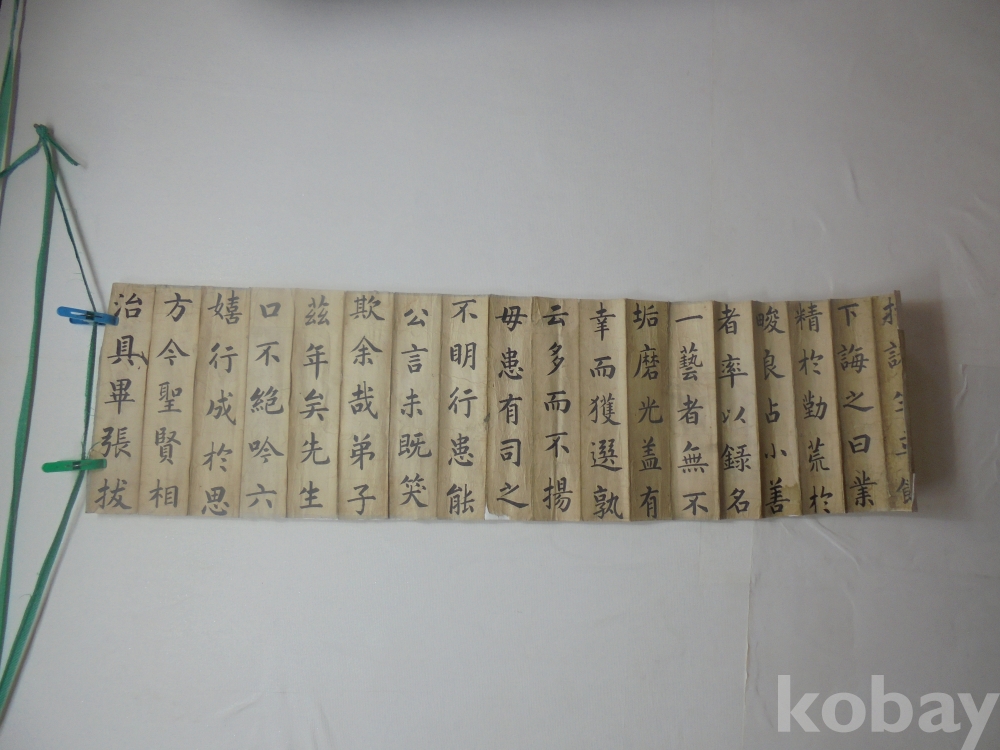 招諸生立館
下誨之曰業
精扵勤荒扵
畯良占小善
者率以録名
一藝者無不
垢磨光盖有
幸而獲選孰
云多而不揚
毋患有司之
不明行患能
公言未既笑
欺余哉弟子
茲年矣先生
口不絶吟六
嬉行成扵思
方今聖賢相
治具畢張拔
kobay